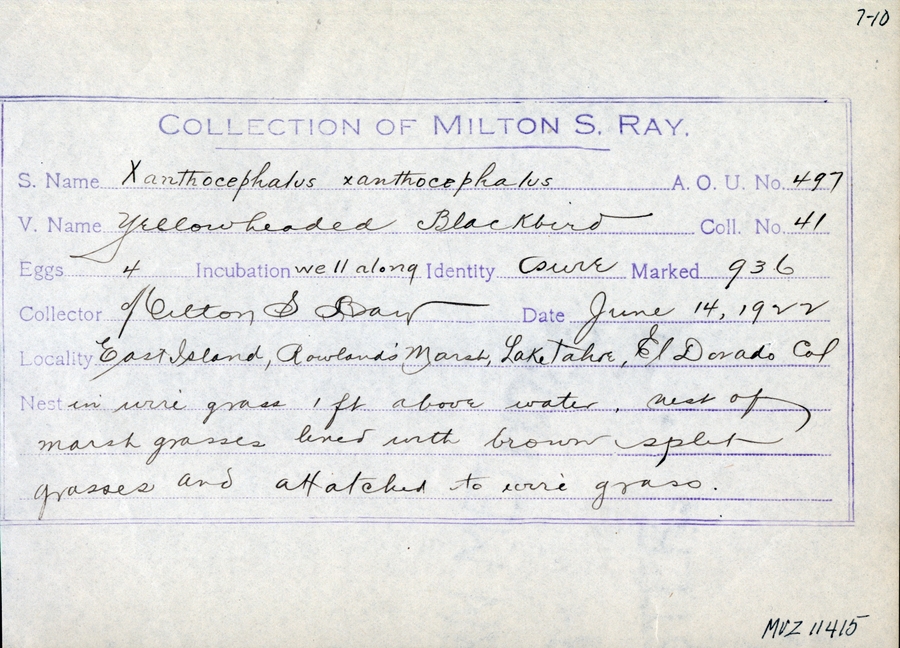 7-10
COLLECTION OF MILTON S. RAY.
S. Name Xanthocephalus xanthocephalus A. O. U. No. 497
V. Name Yellowheaded Blackbird Coll. No. 41
Eggs 4 Incubation well along Identity sure Marked 936
Collector Milton S Ray Date June 14, 1922
Locality East Island, Rowland's Marsh, Lake Tahoe, El Dorado Col
Nest in wire grass 1 ft above water, nest of
marsh grasses lined with brown split
grasses and attatched to wire grass.
MVZ 11415